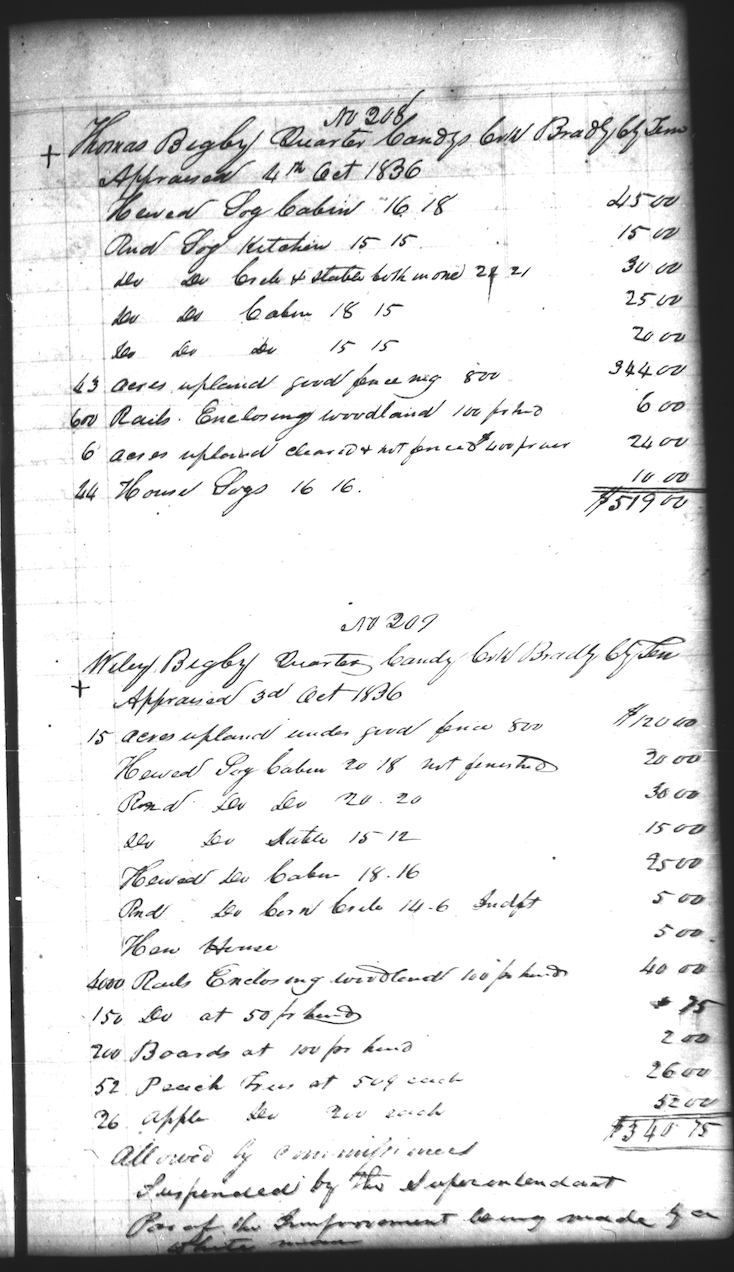 No 208
+ Thomas Bigby Quarter Candys Crk Bradly Cy Tenn
Appraised 4th Oct 1836
Hewed Log Cabin 16 18 45 00
Rnd Log Kitchen 15 15 15 00
Do Do Crib & stable both in one 24 21 30 00
Do Do Cabin 18 15 25 00
Do Do Do 15 15 20 00
43 acres upland good fence 800 344 00
600 Rails Enclosing woodland 100 pr hnd 6 00
6 acres upland cleared & not fenced $400 pr acr 24 00
24 House Logs 16 16. 10 00
$519 00
No 209
+ Wiley Bigby Quarter Candy Crk Bradly Cy Ten
Appraised 3d Oct 1836
15 acres upland under good fence 800 $120 00
Hewed Log Cabin 20 18 not finished 20 00
Rond Do Do 20.20 30 00
Do Do Stable 15-12 15 00
Hewed Do Cabin 18.16 25 00
Rnd Do Corn Crib 14-6 Indft 5 00
Hen House 5 00
4000 Rails Enclosing woodland 100 pr hund 40 00
150 Do at 50 pr hund 75
200 Boards at 100 pr hund 2 00
52 Peach Trees at 50¢ each 26 00
26 Apple Do 200 each 52 00
$340 75
Allowed by Commissioners
Suspended by the Superentendant
of the Improvement being made by a
white man